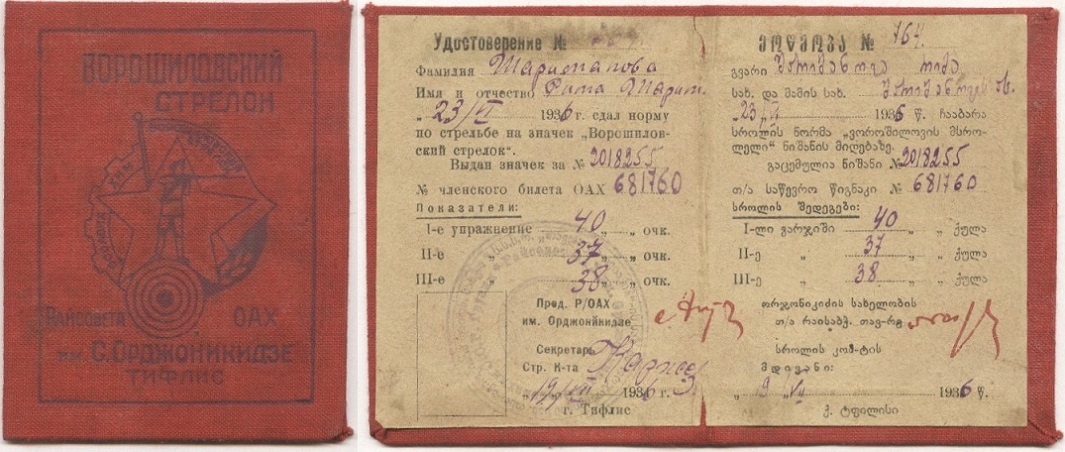 ВОРОШИЛОВСКИЙ
СТРЕЛОК
РАЙСОВЕТА ОАХ
им. С. ОРДЖОНИКИДЗЕ
ТИФЛИС
Удостоверение №
Фамилия Шариманова
Имя и отчество Рима Шарим.
„23/VI 1936 г. сдал норму
по стрельбе на значек „Ворошилов-
ский стрелок".
Выдан значек за № 2018255
№ членского билета ОАХ 681760
Показатели:
I-е упражнение 40 „ очк.
II-е „ 37 „ очк.
III-е „ 38 „ очк.
Пред. Р/ОАХ
им. Орджонйкидзе
Секретарь
Стр. К-та
1936 г.
г. Тифлис
მოწმობა № 764.
გვარი შარიმანოვა რიმა
სახ. და მამის სახ.
„23/VI 1936 წ. ჩააბარა
სროლის ნორმა „ვოროშილოვის მსრო-
ლელი" ნიშანის მიღებაზე.
გაცემულია ნიშანი № 2018255
თ/ა საწევრო წიგნაკი № 681760
სროლის შედეგები:
I-ლი ვარჯიში 40 „ ქულა
II-ე „ 37 „ ქულა
III-ე „ 38 „ ქულა
ორჯონიკიძის სახელობის
თ/ა რაისაბჭ. თავ-რე
სროლის კომ-ტის
მდივანი:
1936 წ.
ქ. ტფილისი